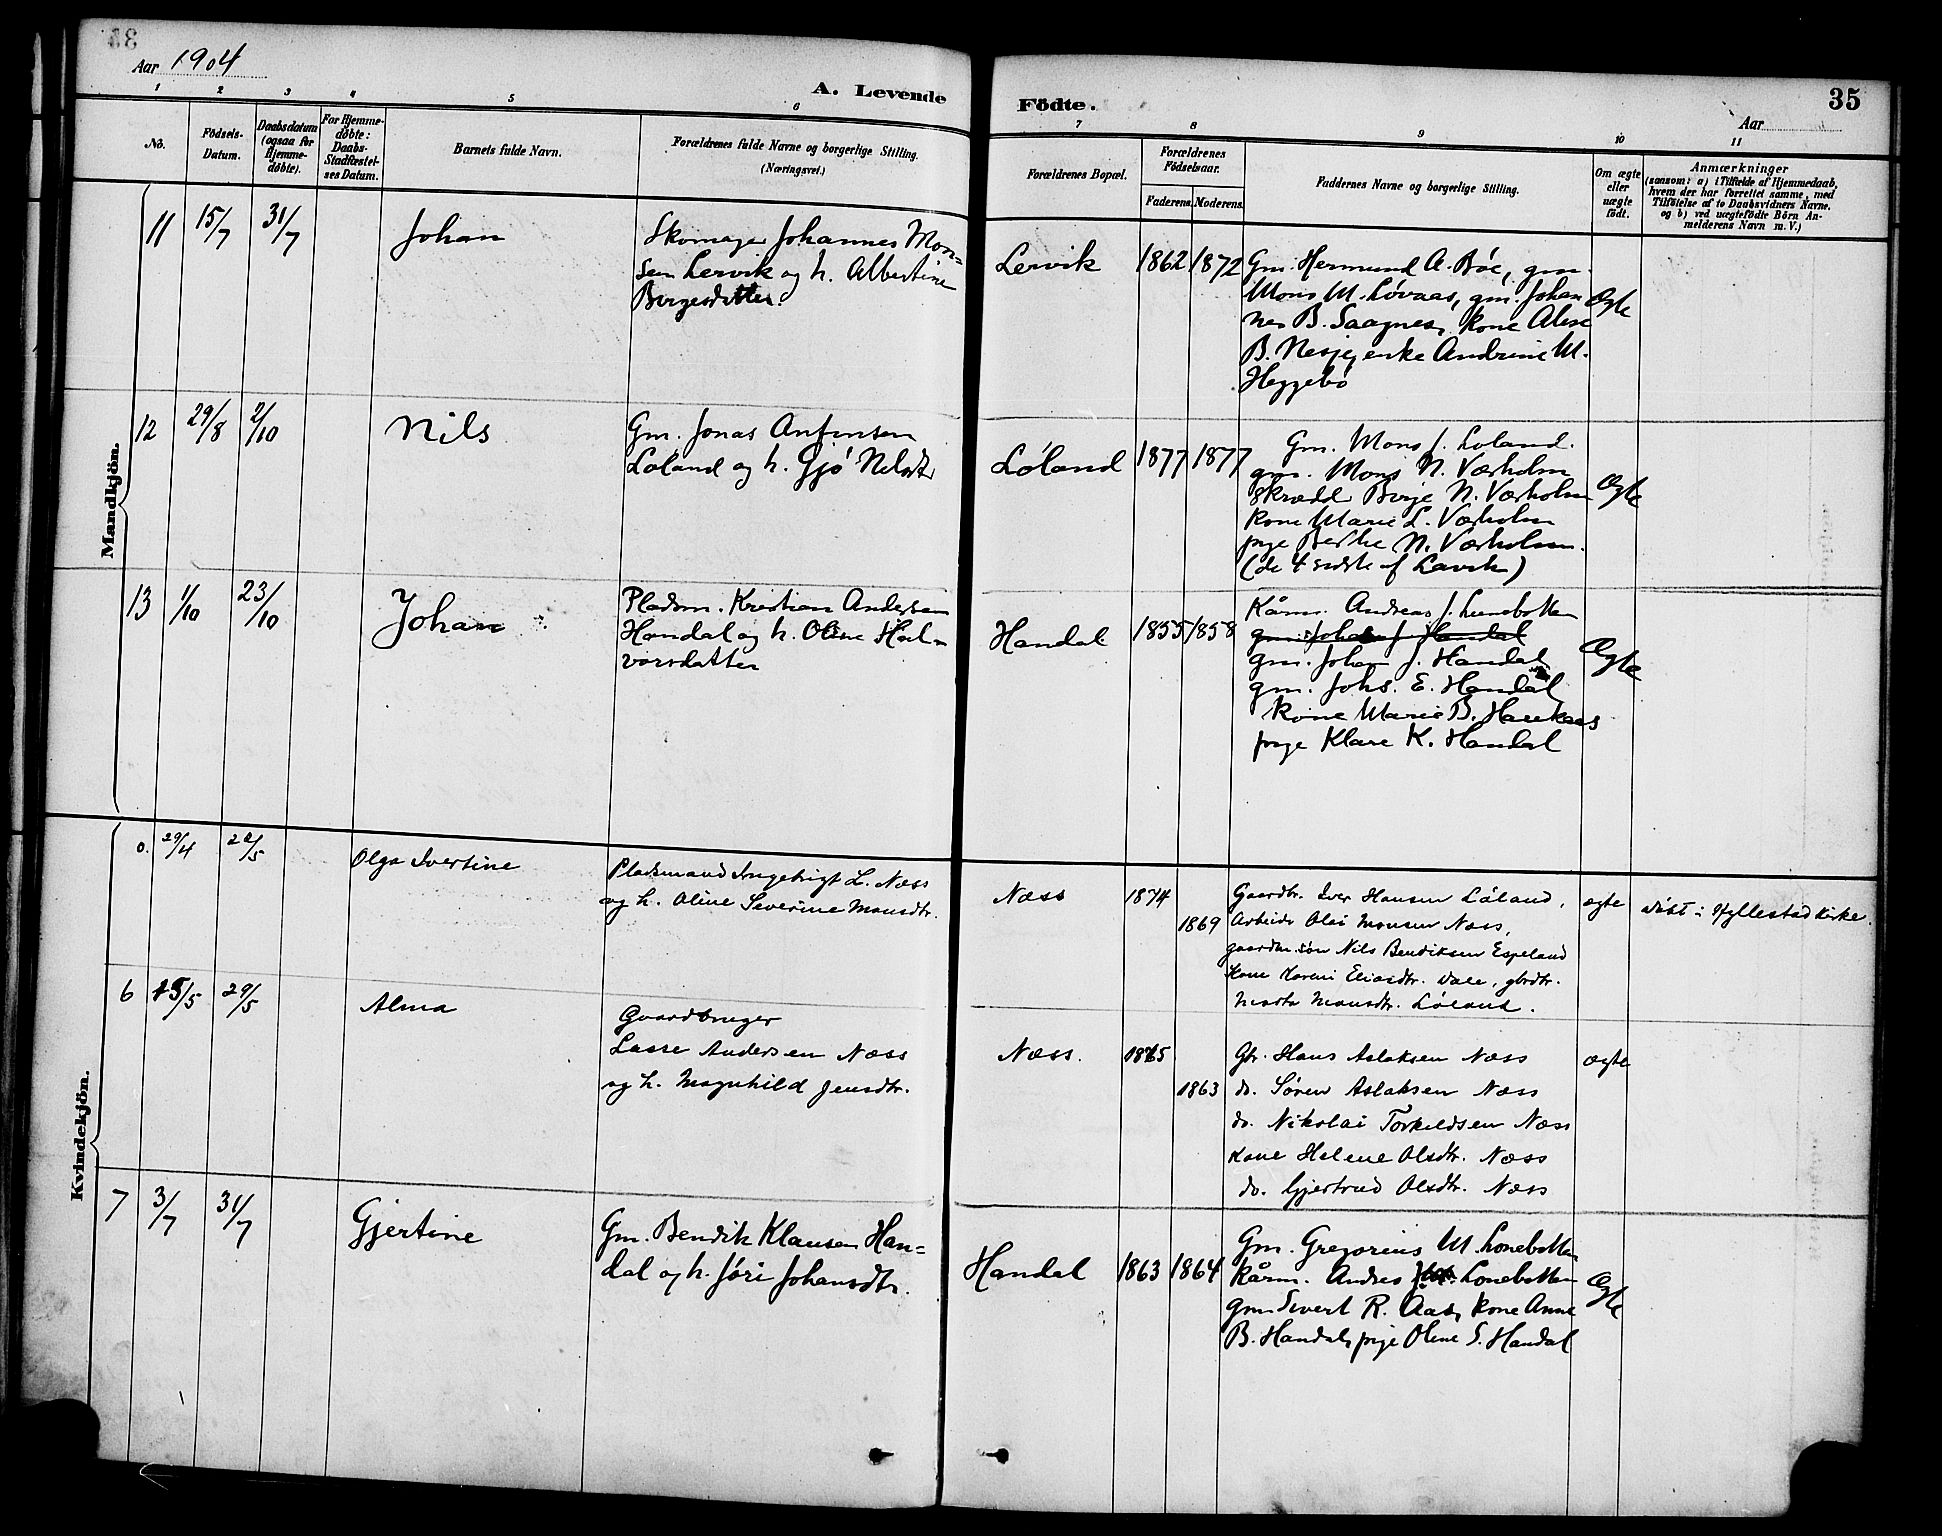 Aar 1904
A. Levende Födte.
35
Aar
1 2 3 4 5 6 7 8 9 10 11
No.
Födsels-
Datum.
Daabsdatum
(ogsaa for
Hjemme-
døbte).
For Hjemme-
døbte:
Daabs-
Stadfæstel-
ses Datum.
Barnets fulde Navn.
Forældrenes fulde Navne og borgerlige Stilling.
(Næringsvei.)
Forældrenes Bopæl.
Forældrenes
Födselsaar.
Faderens. Moderens.
Faddernes Navne og borgerlige Stilling.
Om ægte
eller
uægte
født.
Anmærkninger
(saasom: a) i Tilfælde af Hjemmedaab,
hvem der har forrettet samme, med
Tilföielse af to Daabsvidners Navne,
og b) ved uægtefödte Börn An-
melderens Navn m. V.)
Mandkjön.
11 15/7 31/7 Johan
Skomager Johannes Mon-
sen Lervik og h. Albertine
Borgesdatter
Lervik 1862 1872
Gm. Hermund A. Böe, gm.
Mons M. Lövaas, gm. Johan
nes B. Saagnes, kone Alese
B. Nesje, enke Andrine M.
Heggebö
Ægte
12 29/8 2/10 Nils
Gm. Jonas Anfinsen
Löland og h. Gjö Nilsdtr
Löland 1877 1877
Gm. Mons J. Loland.
gm. Mons N. Værholm
skrædd Borje N. Værholm
kone Marie L. Værholm
pige Berthe N. Værholm.
(de 4 sidste af Lavik)
Ægte
13 1/10 23/10 Johan
Pladsm. Kristian Andersen
Handal og h. Oline Hal-
vorsdatter
Handal 1855 1858
Kårm. Andreas J. Lunebotten
gm. Johan J. Handal
gm. Johan J. Handal
gm. Johs. E. Handal
kone Marie B. Haukaas
pige Klare K. Handal
Ægte
Kvindekjön.
29/4 22/5 Olga Ivertine
Pladsmand Ingebrigt L. Næss
og h. Oline Severine Monsdtr.
Næss 1874
1869
Gaardbr. Iver Hansen Löland,
Arbeider Olai Monsen Næss,
gaardm. sön Nils Bendiksen Espeland
Kone Karen Eliasdtr. Dale, gbrdtr.
Marta Monsdtr. Löland.
ægte
döbt i Hyllestad Kirke
6 15/5 29/5 Alma
Gaardbruger
Lasse Andersen Næss
og h. Magnhild Jensdtr.
Næss. 1865
1863
Gbr. Hans Aslaksen Næss
do. Sören Aslaksen Næss
do. Nikolai Torkildsen Næss
Kone Helene Olsdtr. Næss
do. Gjertrud Olsdtr. Næss
ægte
7 3/7 31/7 Gjertine
Gm. Bendik Klausen Han-
dal og h. Jöri Johansdtr.
Handal 1863 1864
Gm. Gregorius M. Lonebotten
Kårm. Andres Lonebotten
gm. Sivert R. Aas, kone Anne
B. Handal, pige Oline S. Handal
Ægte